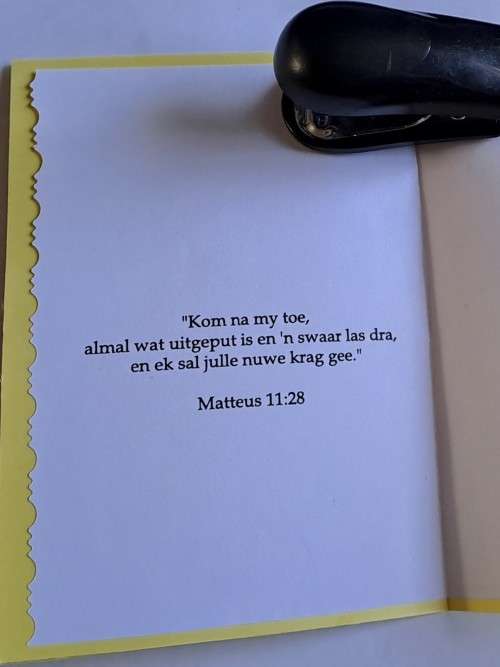 "Kom na my toe,
almal wat uitgeput is en 'n swaar las dra,
en ek sal julle nuwe krag gee."
Matteus 11:28